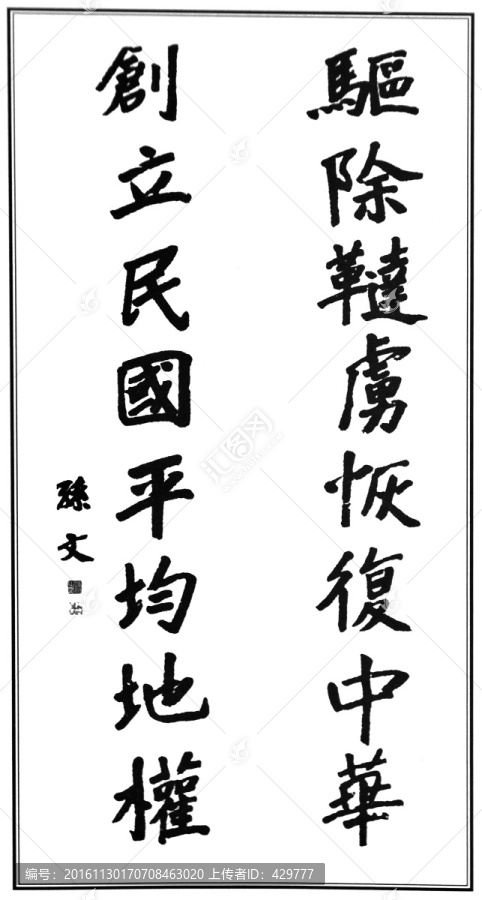 驅除韃虜恢復中華
創立民國平均地權
孫文
汇图网
编号：20161130170708463020 上传者ID：429777